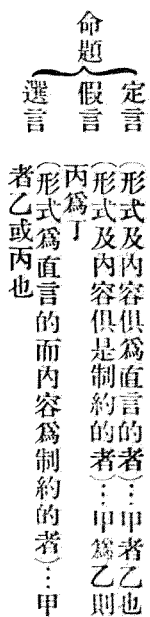 命題
定言(形式及內容俱爲直言的者)…甲者乙也
假言(形式及內容俱是制約的者)…甲爲乙則
丙爲丁
選言(形式爲直言的而內容爲制約的者)…甲
者乙或丙也